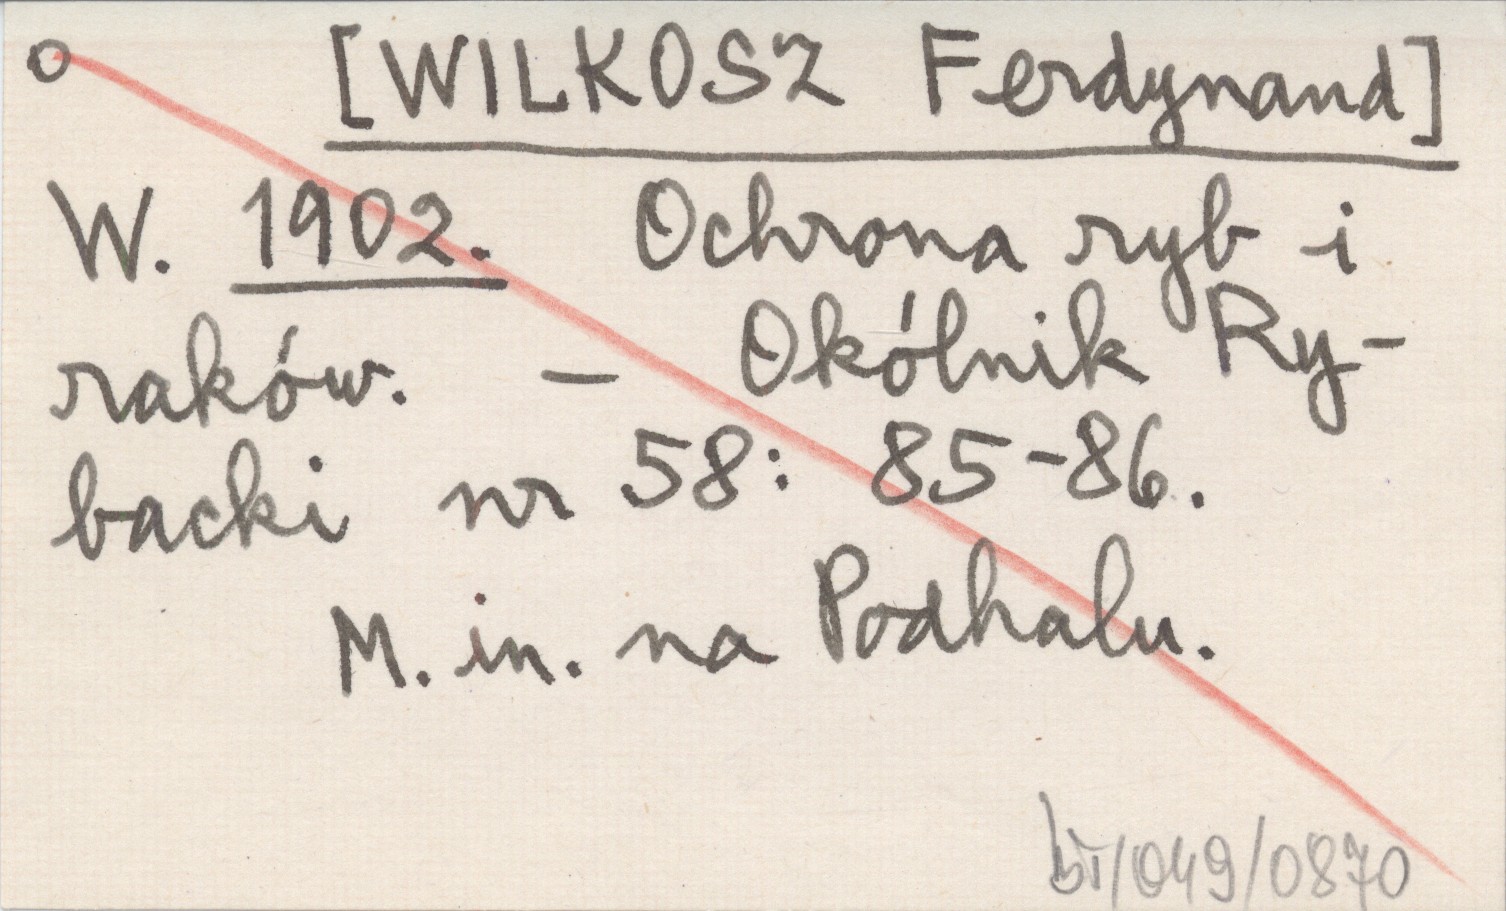 [WILKOSZ Ferdynand]
W. 1902. Ochrona ryb i
raków. – Okólnik Ry-
backi nr 58: 85-86.
M. in. na Podhalu.
bi/049/0870